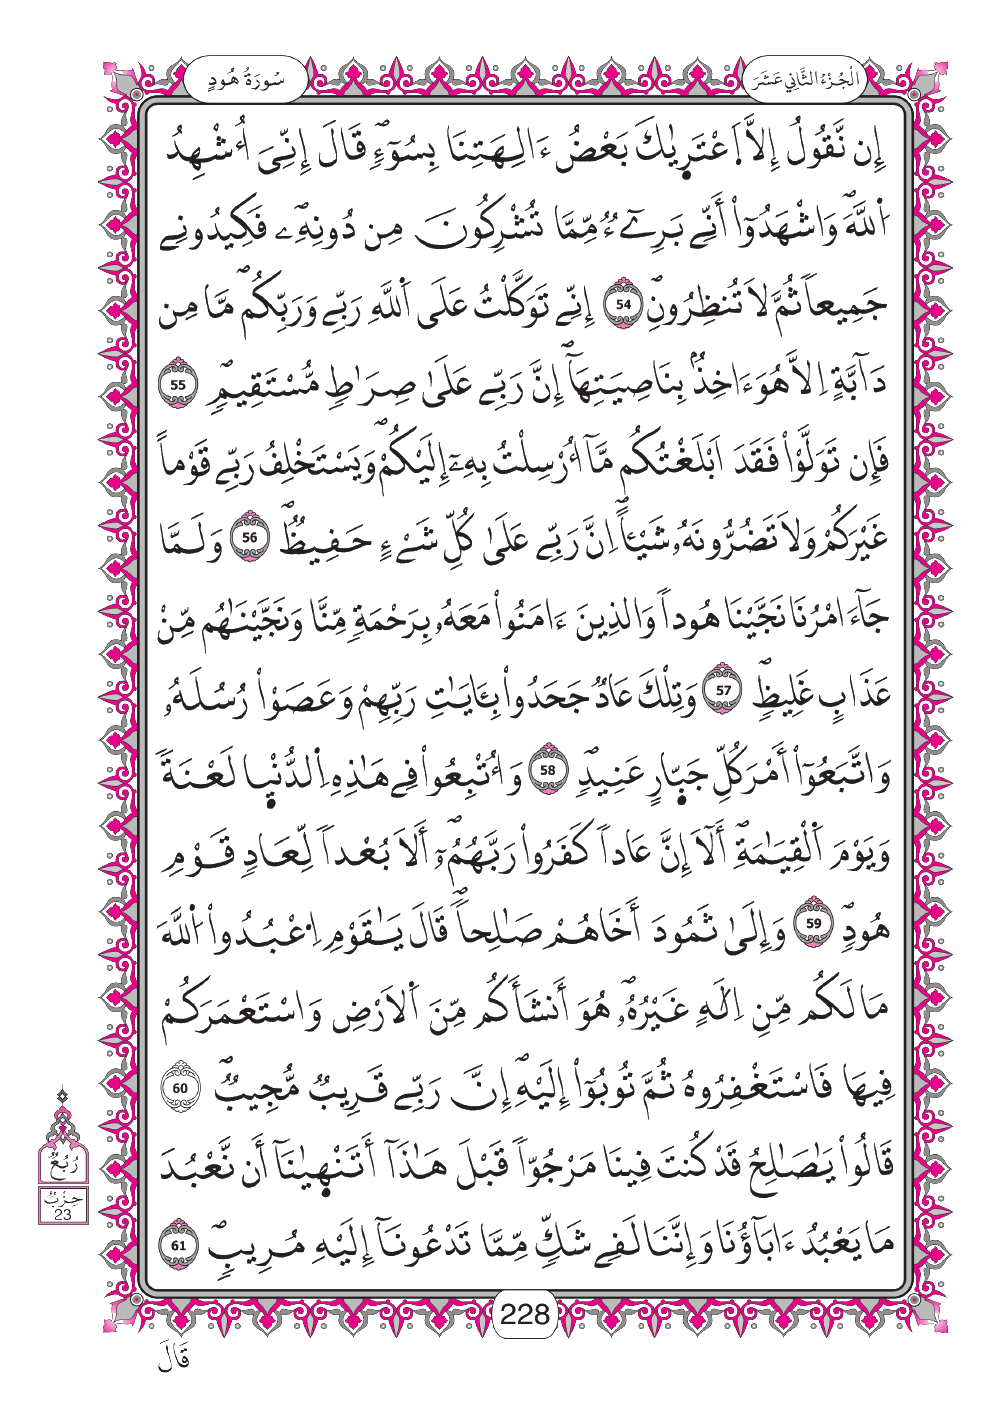 الْجُزْءُ الثَّانِي عَشَرَ
سُورَةُ هُودٍ
إِن نَّقُولُ إِلَّا اَ۪عْتَر۪ىٰكَ بَعْضُ ءَالِهَتِنَا بِسُوٓءٖۖ قَالَ إِنِّىَ أُشْهِدُ
اُ۬للَّهَۖ وَاشْهَدُوٓاْ أَنِّے بَرِےٓءٞ مِّمَّا تُشْرِكُونَ مِن دُونِهِۦۖ فَكِيدُونِے
جَمِيعاٗ ثُمَّ لَا تُنظِرُونِۖ 54 إِنِّے تَوَكَّلْتُ عَلَى اَ۬للَّهِ رَبِّے وَرَبِّكُمۖ مَّا مِن
دَآبَّةٍ اِلَّا هُوَ ءَاخِذُۢ بِنَاصِيَتِهَآۖ إِنَّ رَبِّے عَلَىٰ صِرَٰطٖ مُّسْتَقِيمٖۖ 55
فَإِن تَوَلَّوْاْ فَقَدَ اَبْلَغْتُكُم مَّآ أُرْسِلْتُ بِهِۦٓ إِلَيْكُمْۖ وَيَسْتَخْلِفُ رَبِّے قَوْماً
غَيْرَكُمْ وَلَا تَضُرُّونَهُۥ شَيْـٔاًۖ اِنَّ رَبِّے عَلَىٰ كُلِّ شَےْءٍ حَفِيظٞۖ 56 وَلَمَّا
جَآءَ امْرُنَا نَجَّيْنَا هُوداٗ وَالذِينَ ءَامَنُواْ مَعَهُۥ بِرَحْمَةٖ مِّنَّا وَنَجَّيْنَٰهُم مِّنْ
عَذَابٍ غَلِيظٖۖ 57 وَتِلْكَ عَادٞ جَحَدُواْ بِـَٔايَٰتِ رَبِّهِمْ وَعَصَوْاْ رُسُلَهُۥ
وَاتَّبَعُوٓاْ أَمْرَ كُلِّ جَبّ۪ارٍ عَنِيدٖۖ 58 وَأُتْبِعُواْ فِے هَٰذِهِ اِ۬لدُّنْي۪ا لَعْنَةٗ
وَيَوْمَ اَ۬لْقِيَٰمَةِۖ أَلَآ إِنَّ عَاداٗ كَفَرُواْ رَبَّهُمُۥٓۖ أَلَا بُعْداٗ لِّعَادٖ قَوْمِ
هُودٖۖ 59 وَإِلَىٰ ثَمُودَ أَخَاهُمْ صَٰلِحاٗۖ قَالَ يَٰقَوْمِ اِ۟عْبُدُواْ اُ۬للَّهَ
مَا لَكُم مِّنِ اِلَٰهٍ غَيْرُهُۥۖ هُوَ أَنشَأَكُم مِّنَ اَ۬لَارْضِ وَاسْتَعْمَرَكُمْ
فِيهَا فَاسْتَغْفِرُوهُ ثُمَّ تُوبُوٓاْ إِلَيْهِۖ إِنَّ رَبِّے قَرِيبٞ مُّجِيبٞۖ 60
قَالُواْ يَٰصَٰلِحُ قَدْ كُنتَ فِينَا مَرْجُوّاٗ قَبْلَ هَٰذَآ أَتَنْه۪ىٰنَآ أَن نَّعْبُدَ
مَا يَعْبُدُ ءَابَآؤُنَا وَإِنَّنَا لَفِے شَكّٖ مِّمَّا تَدْعُونَآ إِلَيْهِ مُرِيبٖۖ 61
رُبُعُ
حِزْبٌ
23
228
قَالَ